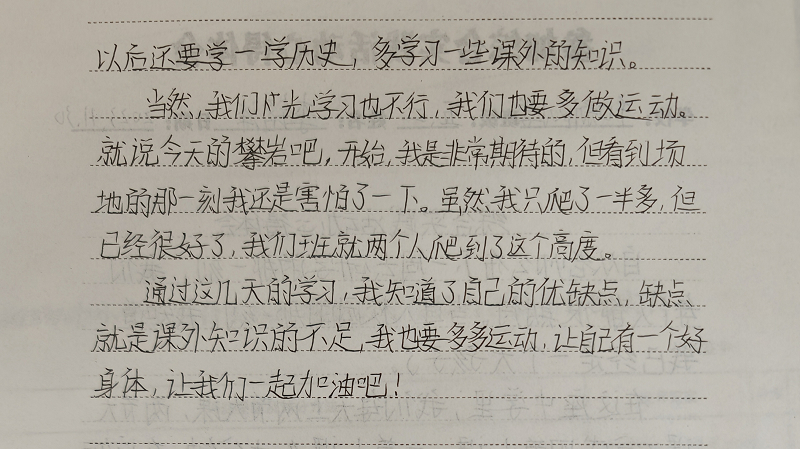 以后还要学一学历史，多学习一些课外的知识。
当然，我们广光学习也不行，我们也要多做运动。
就说今天的攀岩吧，开始，我是非常期待的，但看到场
地的那一刻我还是害怕了一下。虽然我只爬了一半多，但
已经很好了，我们班就两个人爬到了这个高度。
通过这几天的学习，我知道了自己的优缺点，缺点、
就是课外知识的不足，我也要多多运动，让自己有一个好
身体，让我们一起加油吧！